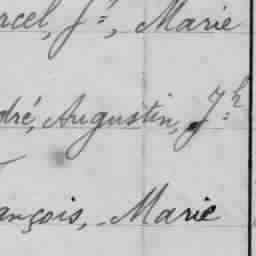 rcel, Jh, Marie
dré, Augustin, Jh
ançois, Marie